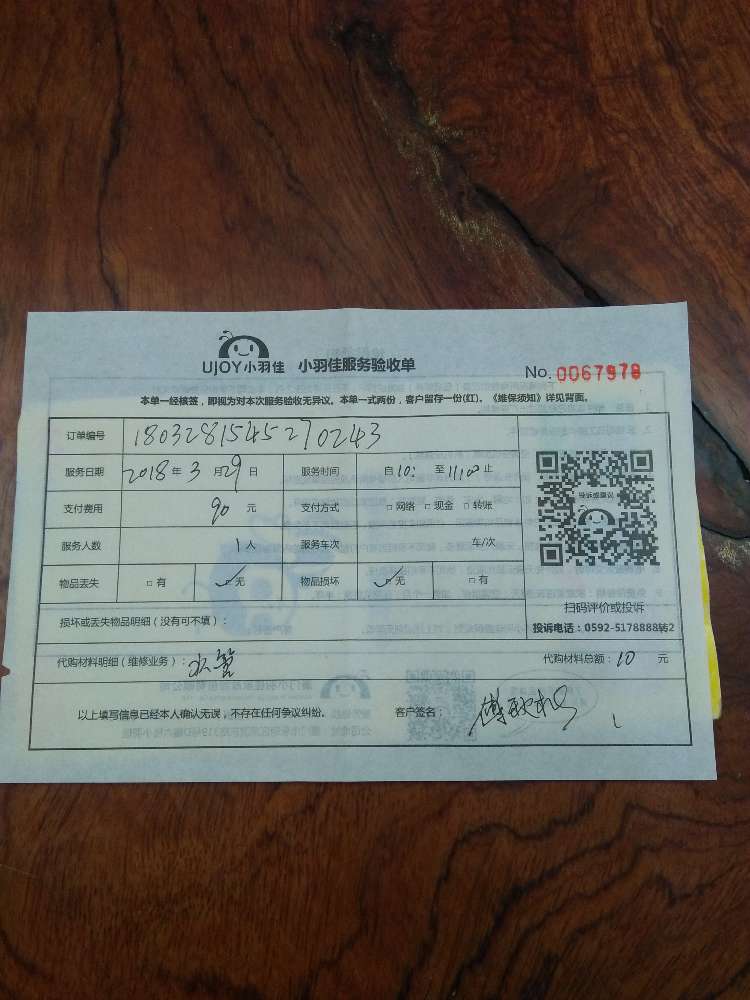 UJOY小羽佳 小羽佳服务验收单
No. 0067978
本单一经核签，即视为对本次服务验收无异议。本单一式两份，客户留存一份(红)。《维保须知》详见背面。
订单编号 1803281545270243
服务日期 2018 年 3 月 29 日 服务时间 自 10: 至 11:00 止
支付费用 90 元 支付方式 □ 网络 □ 现金 □ 转账
服务人数 1 人 服务车次 车/次
物品丢失 □ 有 ☑ 无 物品损坏 ☑ 无 □ 有
投诉或建议
扫码评价或投诉
损坏或丢失物品明细（没有可不填）：
投诉电话：0592-5178888
代购材料明细（维修业务）：水管 代购材料总额：10 元
以上填写信息已经本人确认无误，不存在任何争议纠纷。 客户签名：